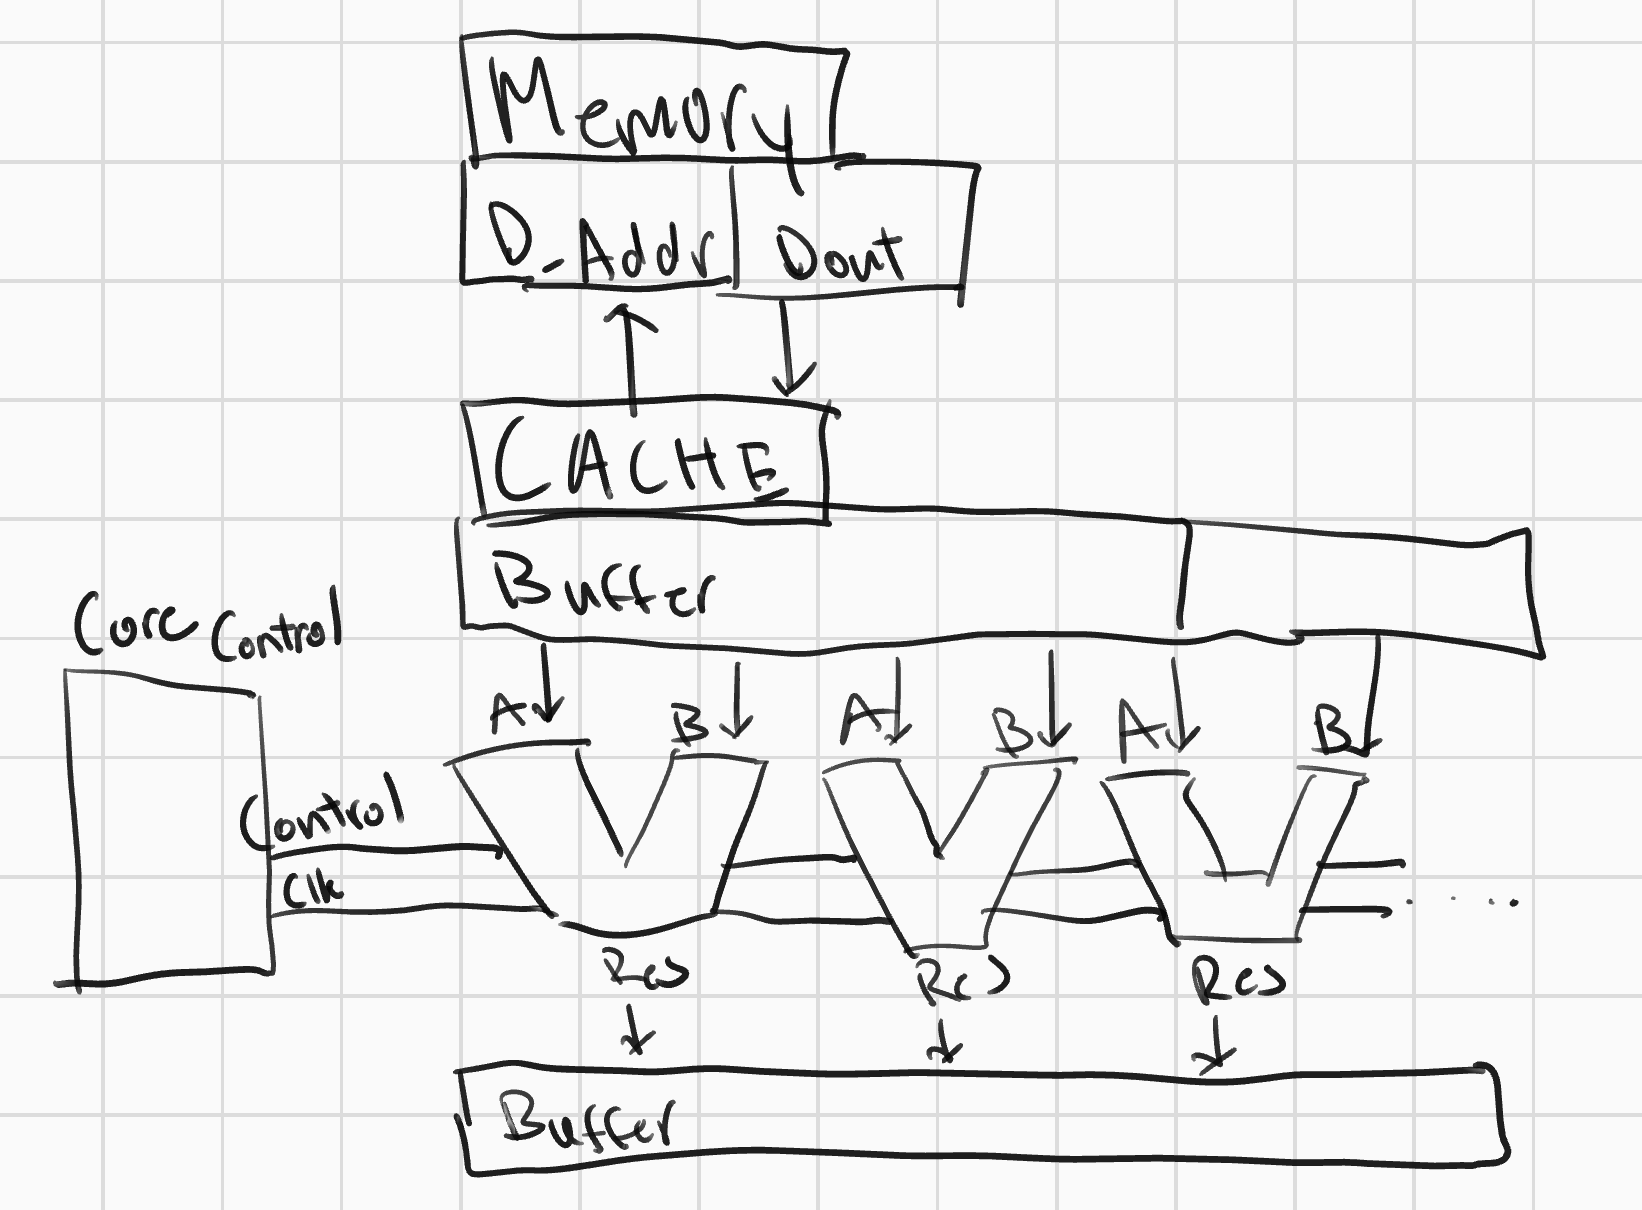 Memory
D_Addr Dout
CACHE
Buffer
Core Control
A B A B A B
Control
Clk
Res Res Res
Buffer